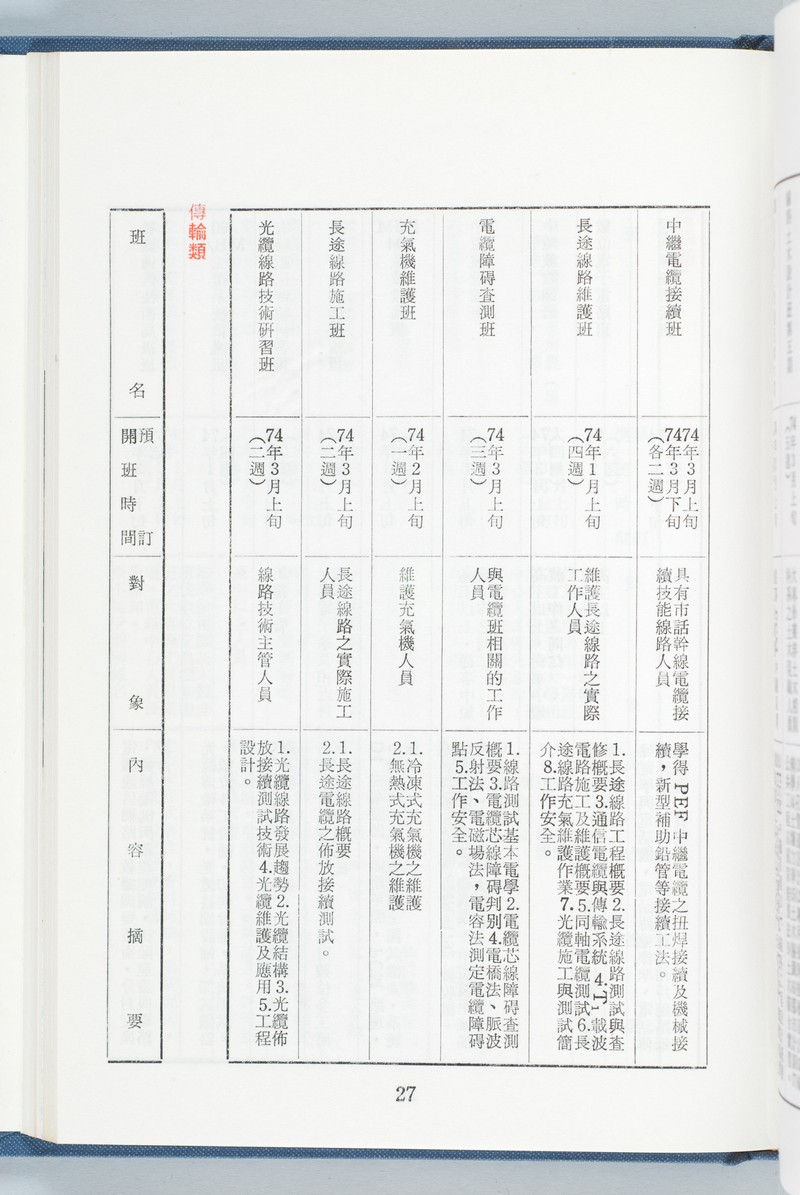 中繼電纜接續班
74年3月上旬
74年3月下旬
(各二週)
具有市話幹線電纜接
續技能線路人員
學得 PEF 中繼電纜之扭焊接續及機械接
續,新型補助鉛管等接續工法。
長途線路維護班
74年1月上旬
(四週)
維護長途線路之實際
工作人員
1.長途線路工程概要2.長途線路測試與查
修概要3.通信電纜與傳輸系統 4.T1載波
電路施工及維護概要5.同軸電纜測試6.長
途線路充氣維護作業7.光纜施工與測試簡
介8.工作安全。
電纜障碍查測班
74年3月上旬
(三週)
與電纜班相關的工作
人員
1.線路測試基本電學2.電纜芯線障碍查測
概要3.電纜芯線障碍判別4.電橋法、脈波
反射法、電磁場法,電容法測定電纜障碍
點5.工作安全。
充氣機維護班
74年2月上旬
(一週)
維護充氣機人員
1.冷凍式充氣機之維護
2.無熱式充氣機之維護
長途線路施工班
74年3月上旬
(二週)
長途線路之實際施工
人員
1.長途線路概要
2.長途電纜之佈放接續測試。
光纜線路技術研習班
74年3月上旬
(二週)
線路技術主管人員
1.光纜線路發展趨勢2.光纜結構3.光纜佈
放接續測試技術4.光纜維護及應用5.工程
設計。
傳輸類
班名
預訂
開班時間
對象
內容摘要
27